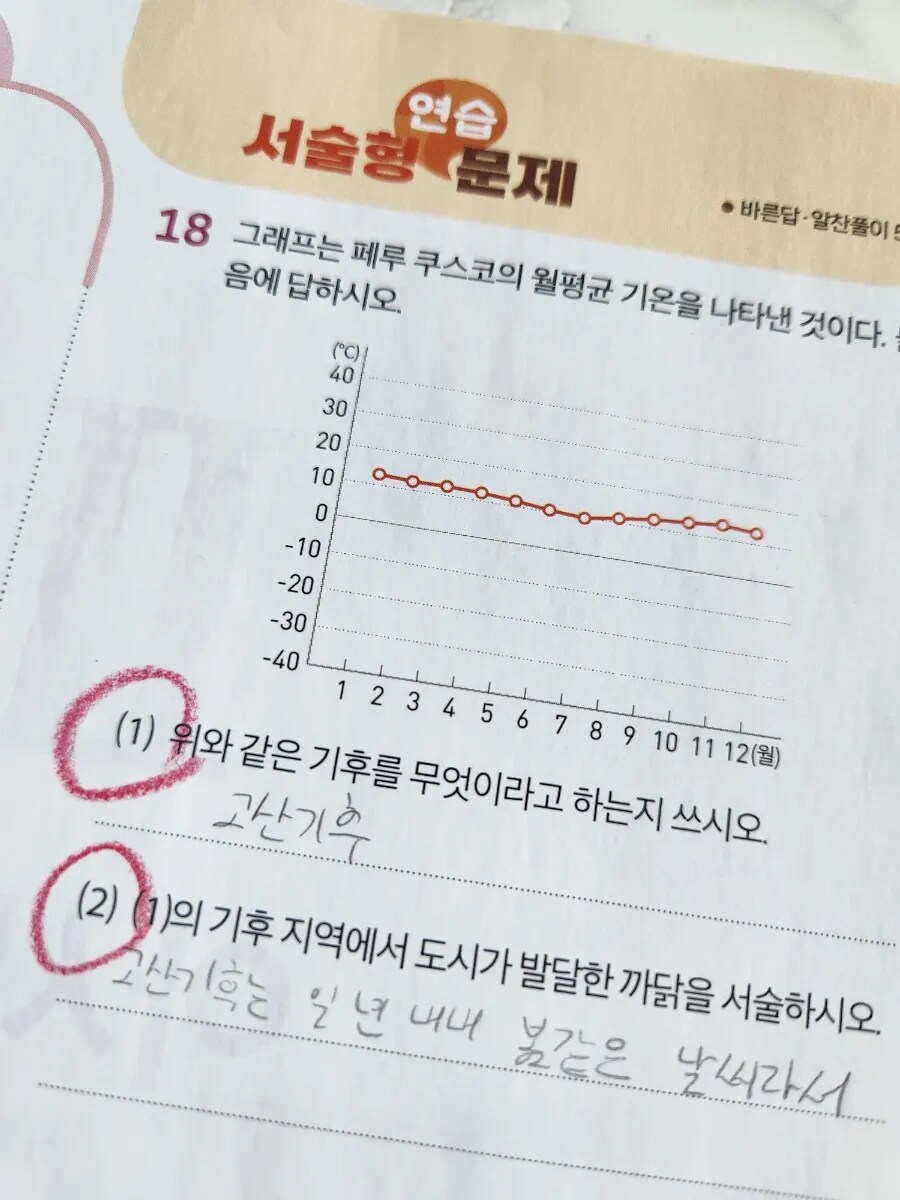 연습
서술형 문제
바른답·알찬풀이
18 그래프는 페루 쿠스코의 월평균 기온을 나타낸 것이다.
음에 답하시오.
(℃)
40
30
20
10
0
-10
-20
-30
-40
1 2 3 4 5 6 7 8 9 10 11 12(월)
(1) 위와 같은 기후를 무엇이라고 하는지 쓰시오.
고산기후
(2) (1)의 기후 지역에서 도시가 발달한 까닭을 서술하시오.
고산기후는 일 년 내내 봄같은 날씨라서